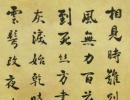 相見時難
風無力百花
到死絲方盡
灰淚始乾
雲鬢改夜